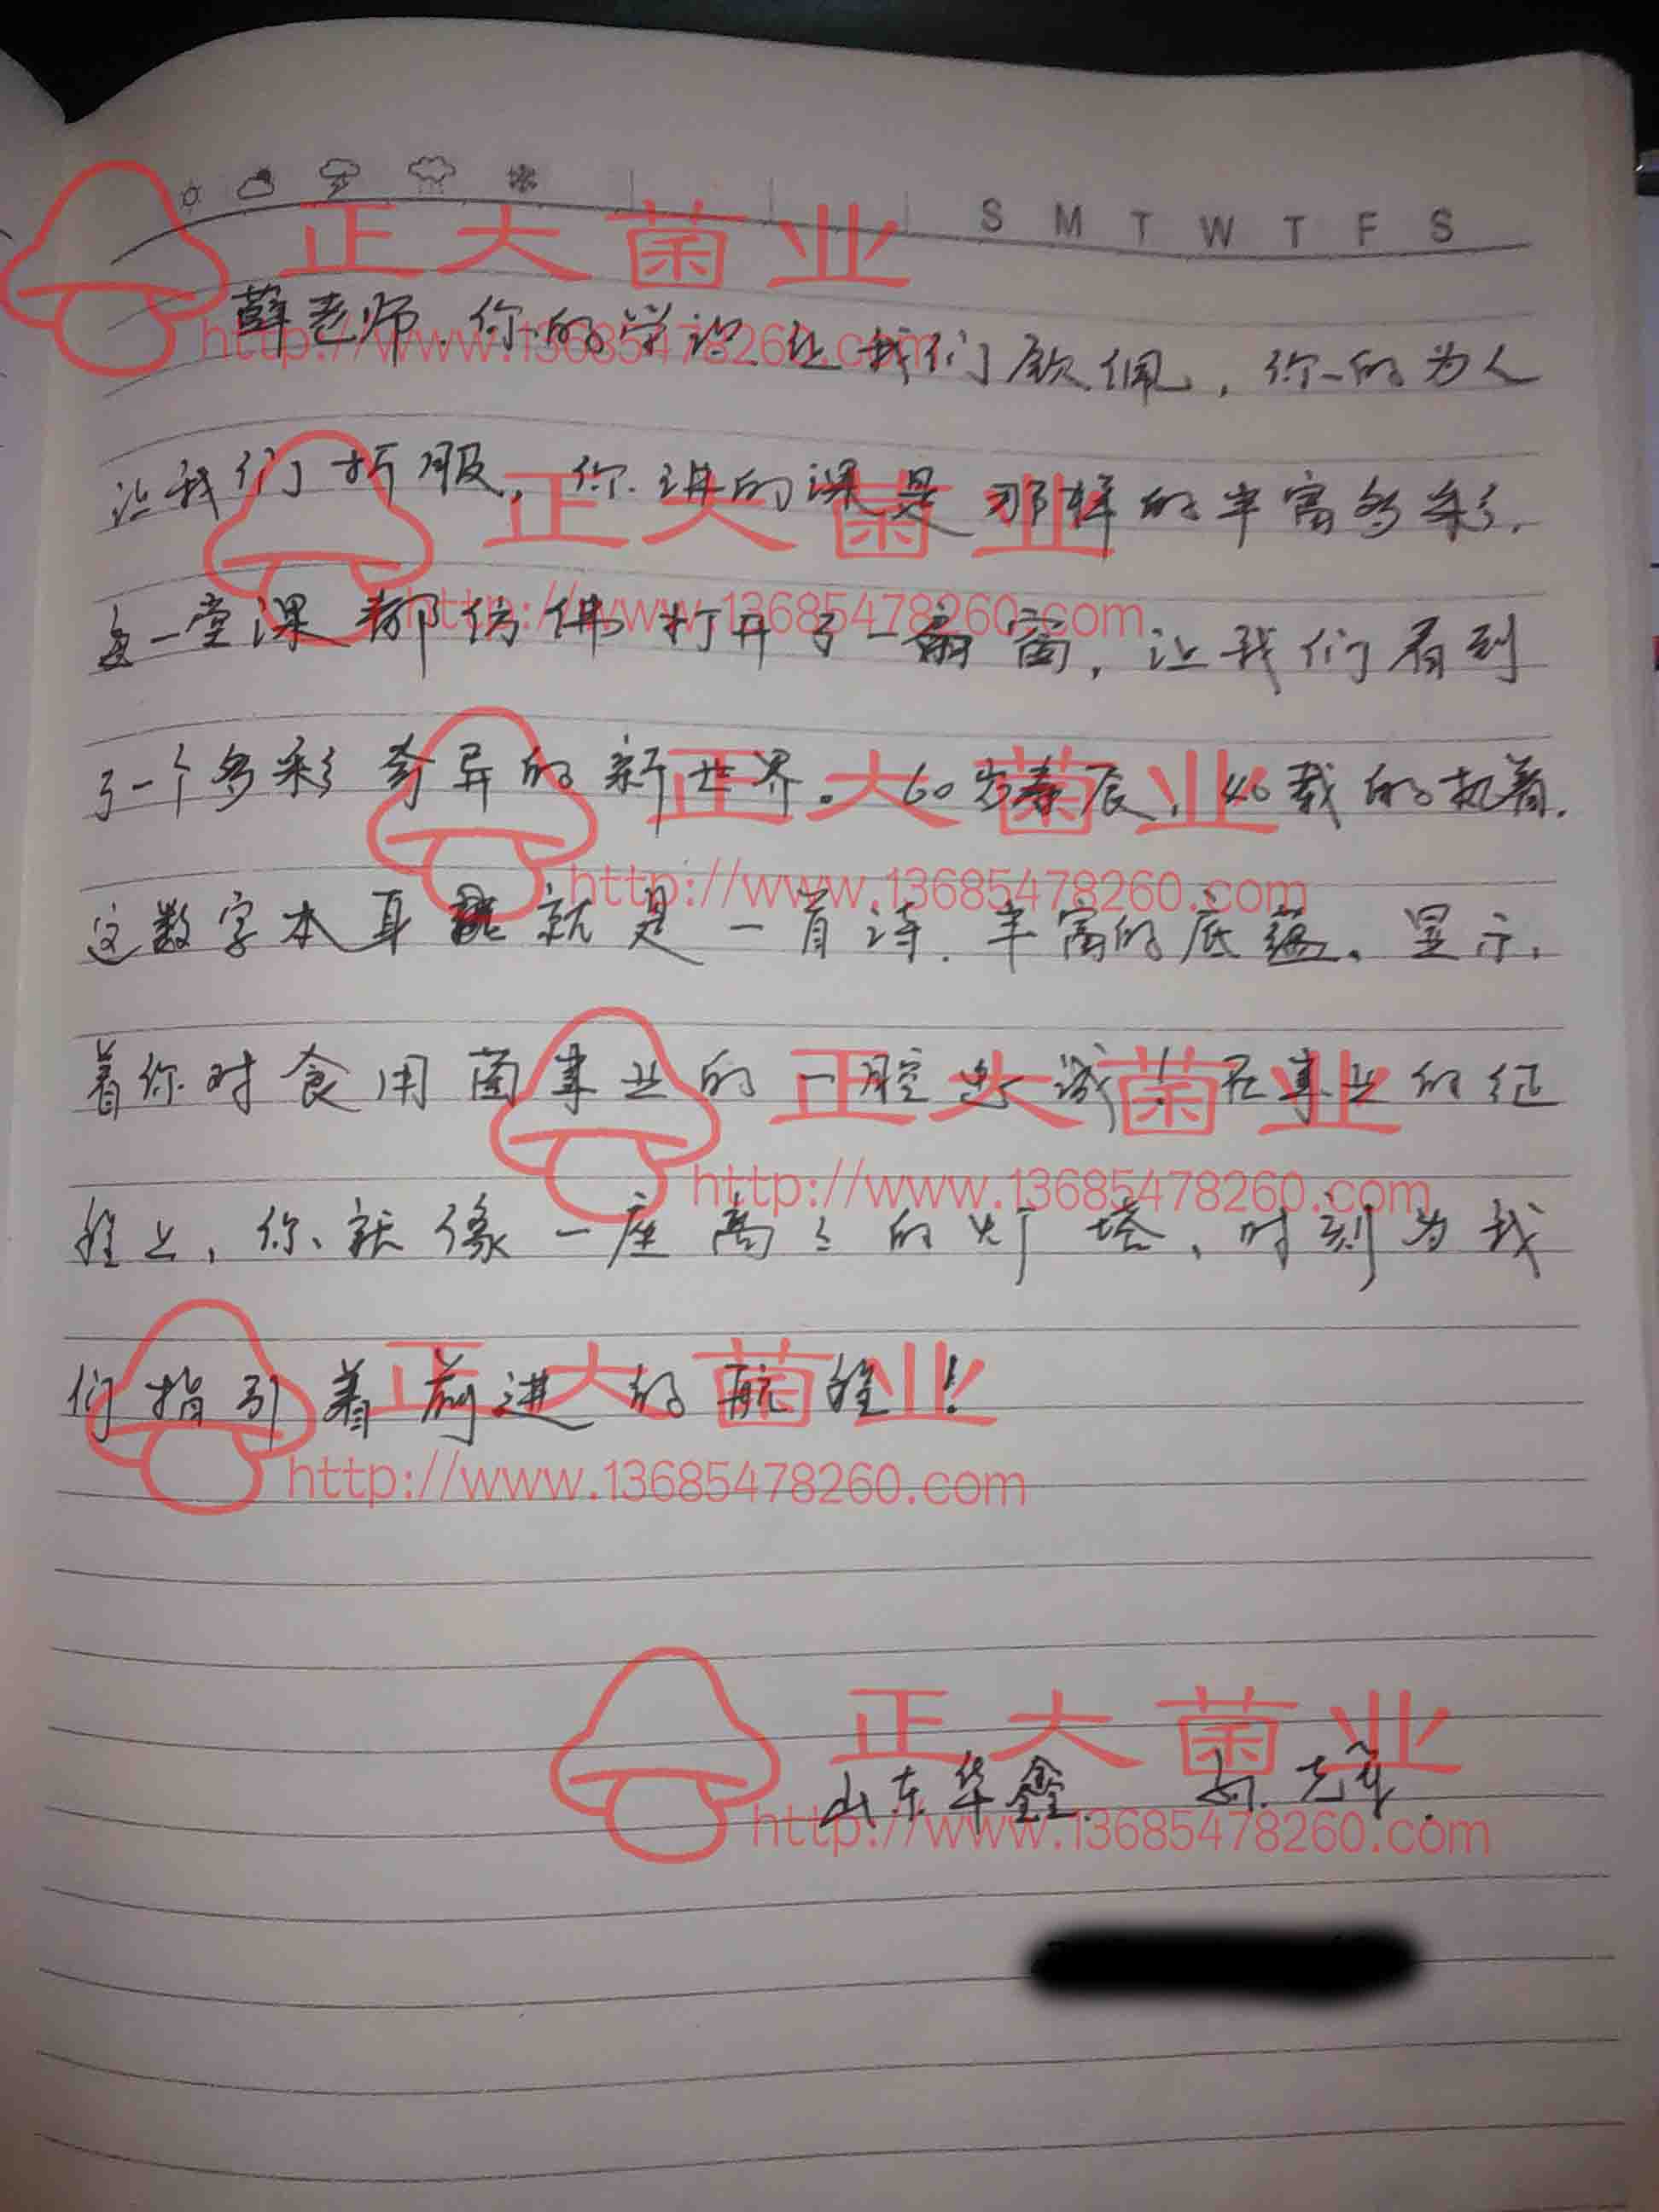 S M T W T F S
正大菌业
http://www.13685478260.com
薛老师.你的学识让我们钦佩,你的为人
让我们折服,你讲的课是那样的丰富多彩.
正大菌业
http://www.13685478260.com
每一堂课都仿佛打开了一扇窗,让我们看到
了一个多彩奇异的新世界。60岁寿辰,40载的执着.
正大菌业
http://www.13685478260.com
这数字本身就是一首诗.丰富的底蕴、显示,
着你对食用菌事业的一腔忠诚!在事业的征
正大菌业
http://www.13685478260.com
程上,你就像一座高高的灯塔,时刻为我
们指引着前进的航程!
正大菌业
http://www.13685478260.com
正大菌业
山东华鑫.
http://www.13685478260.com